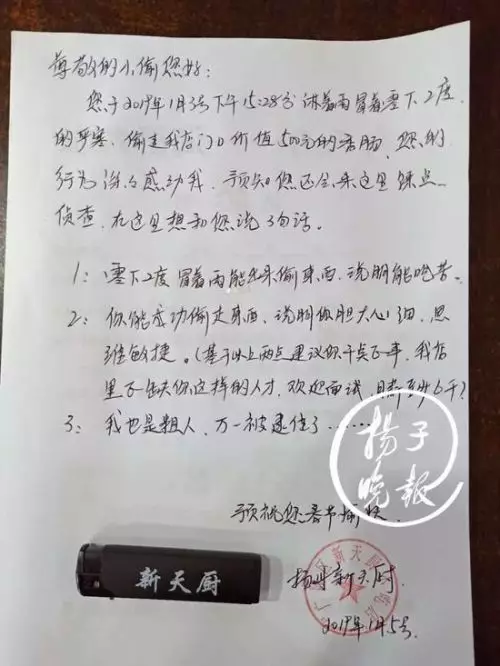 尊敬的小偷您好:
您于2019年1月3号下午15:28分淋着雨冒着零下2度
的严寒、偷走我店门口价值500元的香肠、您的
行为深々感动我、预知您还会来这里踩点
侦查、在这里想和您说3句话。
1: 零下2度冒着雨能出来偷东西,说明能吃苦。
2: 你能成功偷走东西、说明你胆大心细、思
维敏捷。(基于以上两点建议你干点正事、我店
里正缺你这样的人才、欢迎面试、月薪至少6千)
3: 我也是粗人、万一被逮住了……
扬子
晚报
预祝您春节愉快、
新天厨
扬州新天厨
2019年1月5号